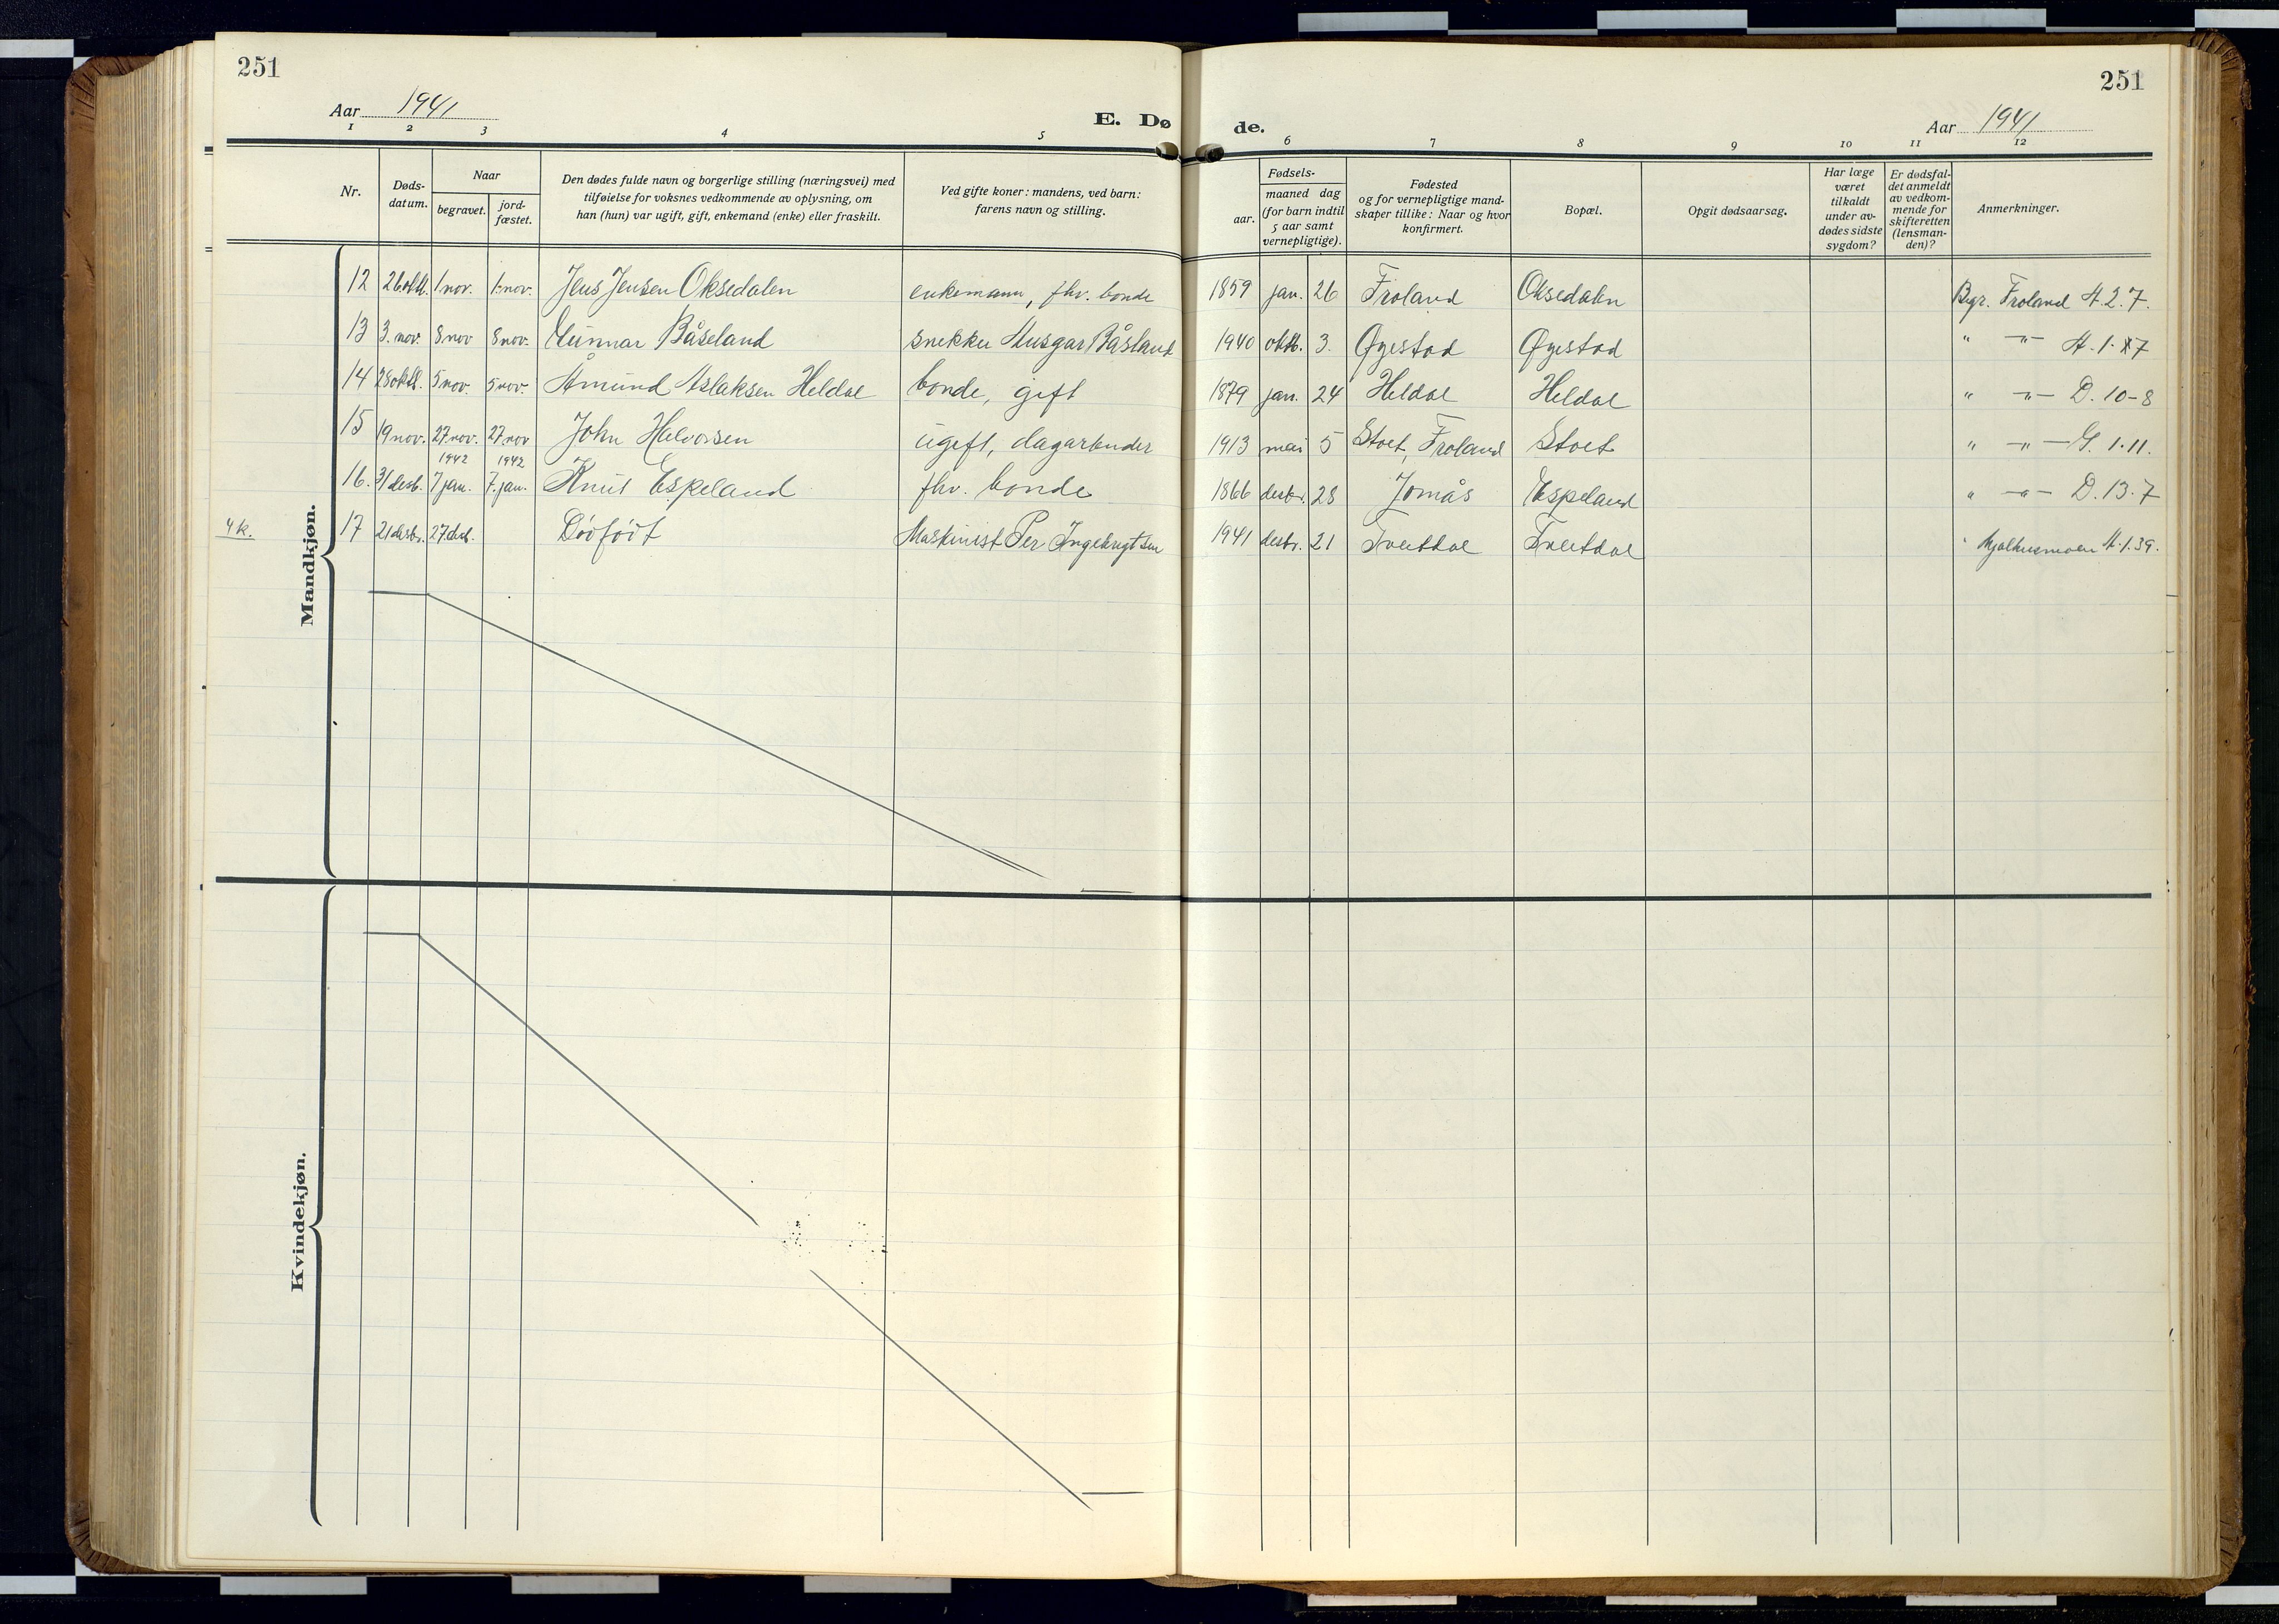 251
251
Aar 1941
E. Dø
de.
Aar 1941
1 2 3 4 5 6 7 8 9 10 11 12
Nr.
Døds-
datum.
Naar
begravet.
jord-
fæstet.
Den dødes fulde navn og borgerlige stilling (næringsvei) med
tilføielse for voksnes vedkommende av oplysning, om
han (hun) var ugift, gift, enkemand (enke) eller fraskilt.
Ved gifte koner: mandens, ved barn:
farens navn og stilling.
Fødsels-
aar.
maaned dag
(for barn indtil
5 aar samt
vernepligtige).
Fødested
og for vernepligtige mand-
skaper tillike: Naar og hvor
konfirmert.
Bopæl.
Opgit dødsaarsag.
Har læge
været
tilkaldt
under av-
dødes sidste
sygdom?
Er dødsfal-
det anmeldt
av vedkom-
mende for
skifteretten
(lensman-
den)?
Anmerkninger.
Mandkjøn.
12 26 okt. 1 nov. 1. nov. Jens Jensen Oksedalen enkemann, fhv. bonde 1859 jan. 26 Froland Oksedalen Begr. Froland A. 2. 7.
13 3. nov. 8 nov 8 nov. Gunnar Båseland snekker Åsgar Båsland 1940 oktb. 3. Øyestad Øyestad " -"- A. 1. 7
14 28 okt. 5 nov. 5 nov. Åmund Aslaksen Heldal bonde, gift 1879 jan. 24 Heldal Heldal " -"- D. 10-8
15 19 nov. 27 nov. 27 nov John Halvorsen ugift, dagarbeider 1913 mai 5 Stoet, Froland Stoet " -"- G. 1. 11.
1942 1942
16. 31 desb. 7 jan. 7. jan. Knut Espeland fhv. bonde 1866 desbr. 28 Jomås Espeland " -"- D. 13. 7
4 k. 17 21 desbr. 27. des. Dødfødt Maskinist Per Ingebrigtsen 1941 desbr. 21 Tveitdal Tveitdal " Mjølhusmoen A. 1. 39.
Kvindekjøn.